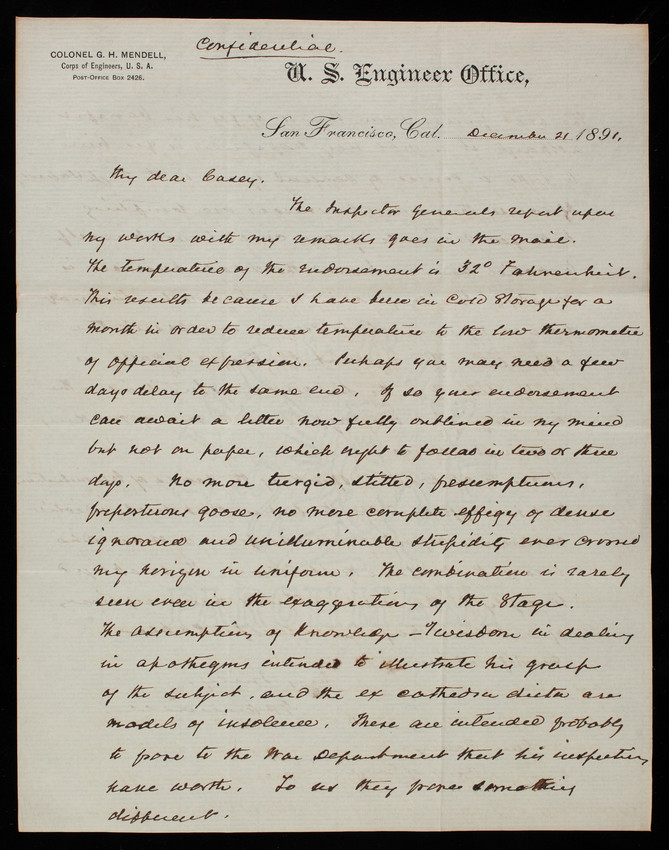 Confidential.
COLONEL G. H. MENDELL,
Corps of Engineers, U. S. A.
POST-OFFICE BOX 2426.
U. S. Engineer Office,
San Francisco, Cal. December 21 1891.
My dear Casey.
The Inspector Generals report upon
my works with my remarks goes in the mail.
The temperature of the endorsement is 32° Fahrenheit.
This results because I have been in Cold Storage for a
month in order to reduce temperature to the low thermometer
of official expression. Perhaps you may need a few
days delay to the same end. If so your endorsement
can await a letter now fully outlined in my mind
but not on paper, which ought to follow in two or three
days. No more turgid, stilted, presumptuous,
preposterous goose, no more complete effigy of dense
ignorance and unilluminable stupidity ever crossed
my horizon in uniform. The combination is rarely
seen even in the exaggerations of the Stage.
The assumption of Knowledge & wisdom in dealing
in apothegms intended to illustrate his grasp
of the subject, and the ex cathedra dicta are
models of insolence. These are intended probably
to prove to the War Department that his inspections
have worth. To us they prove something
different.